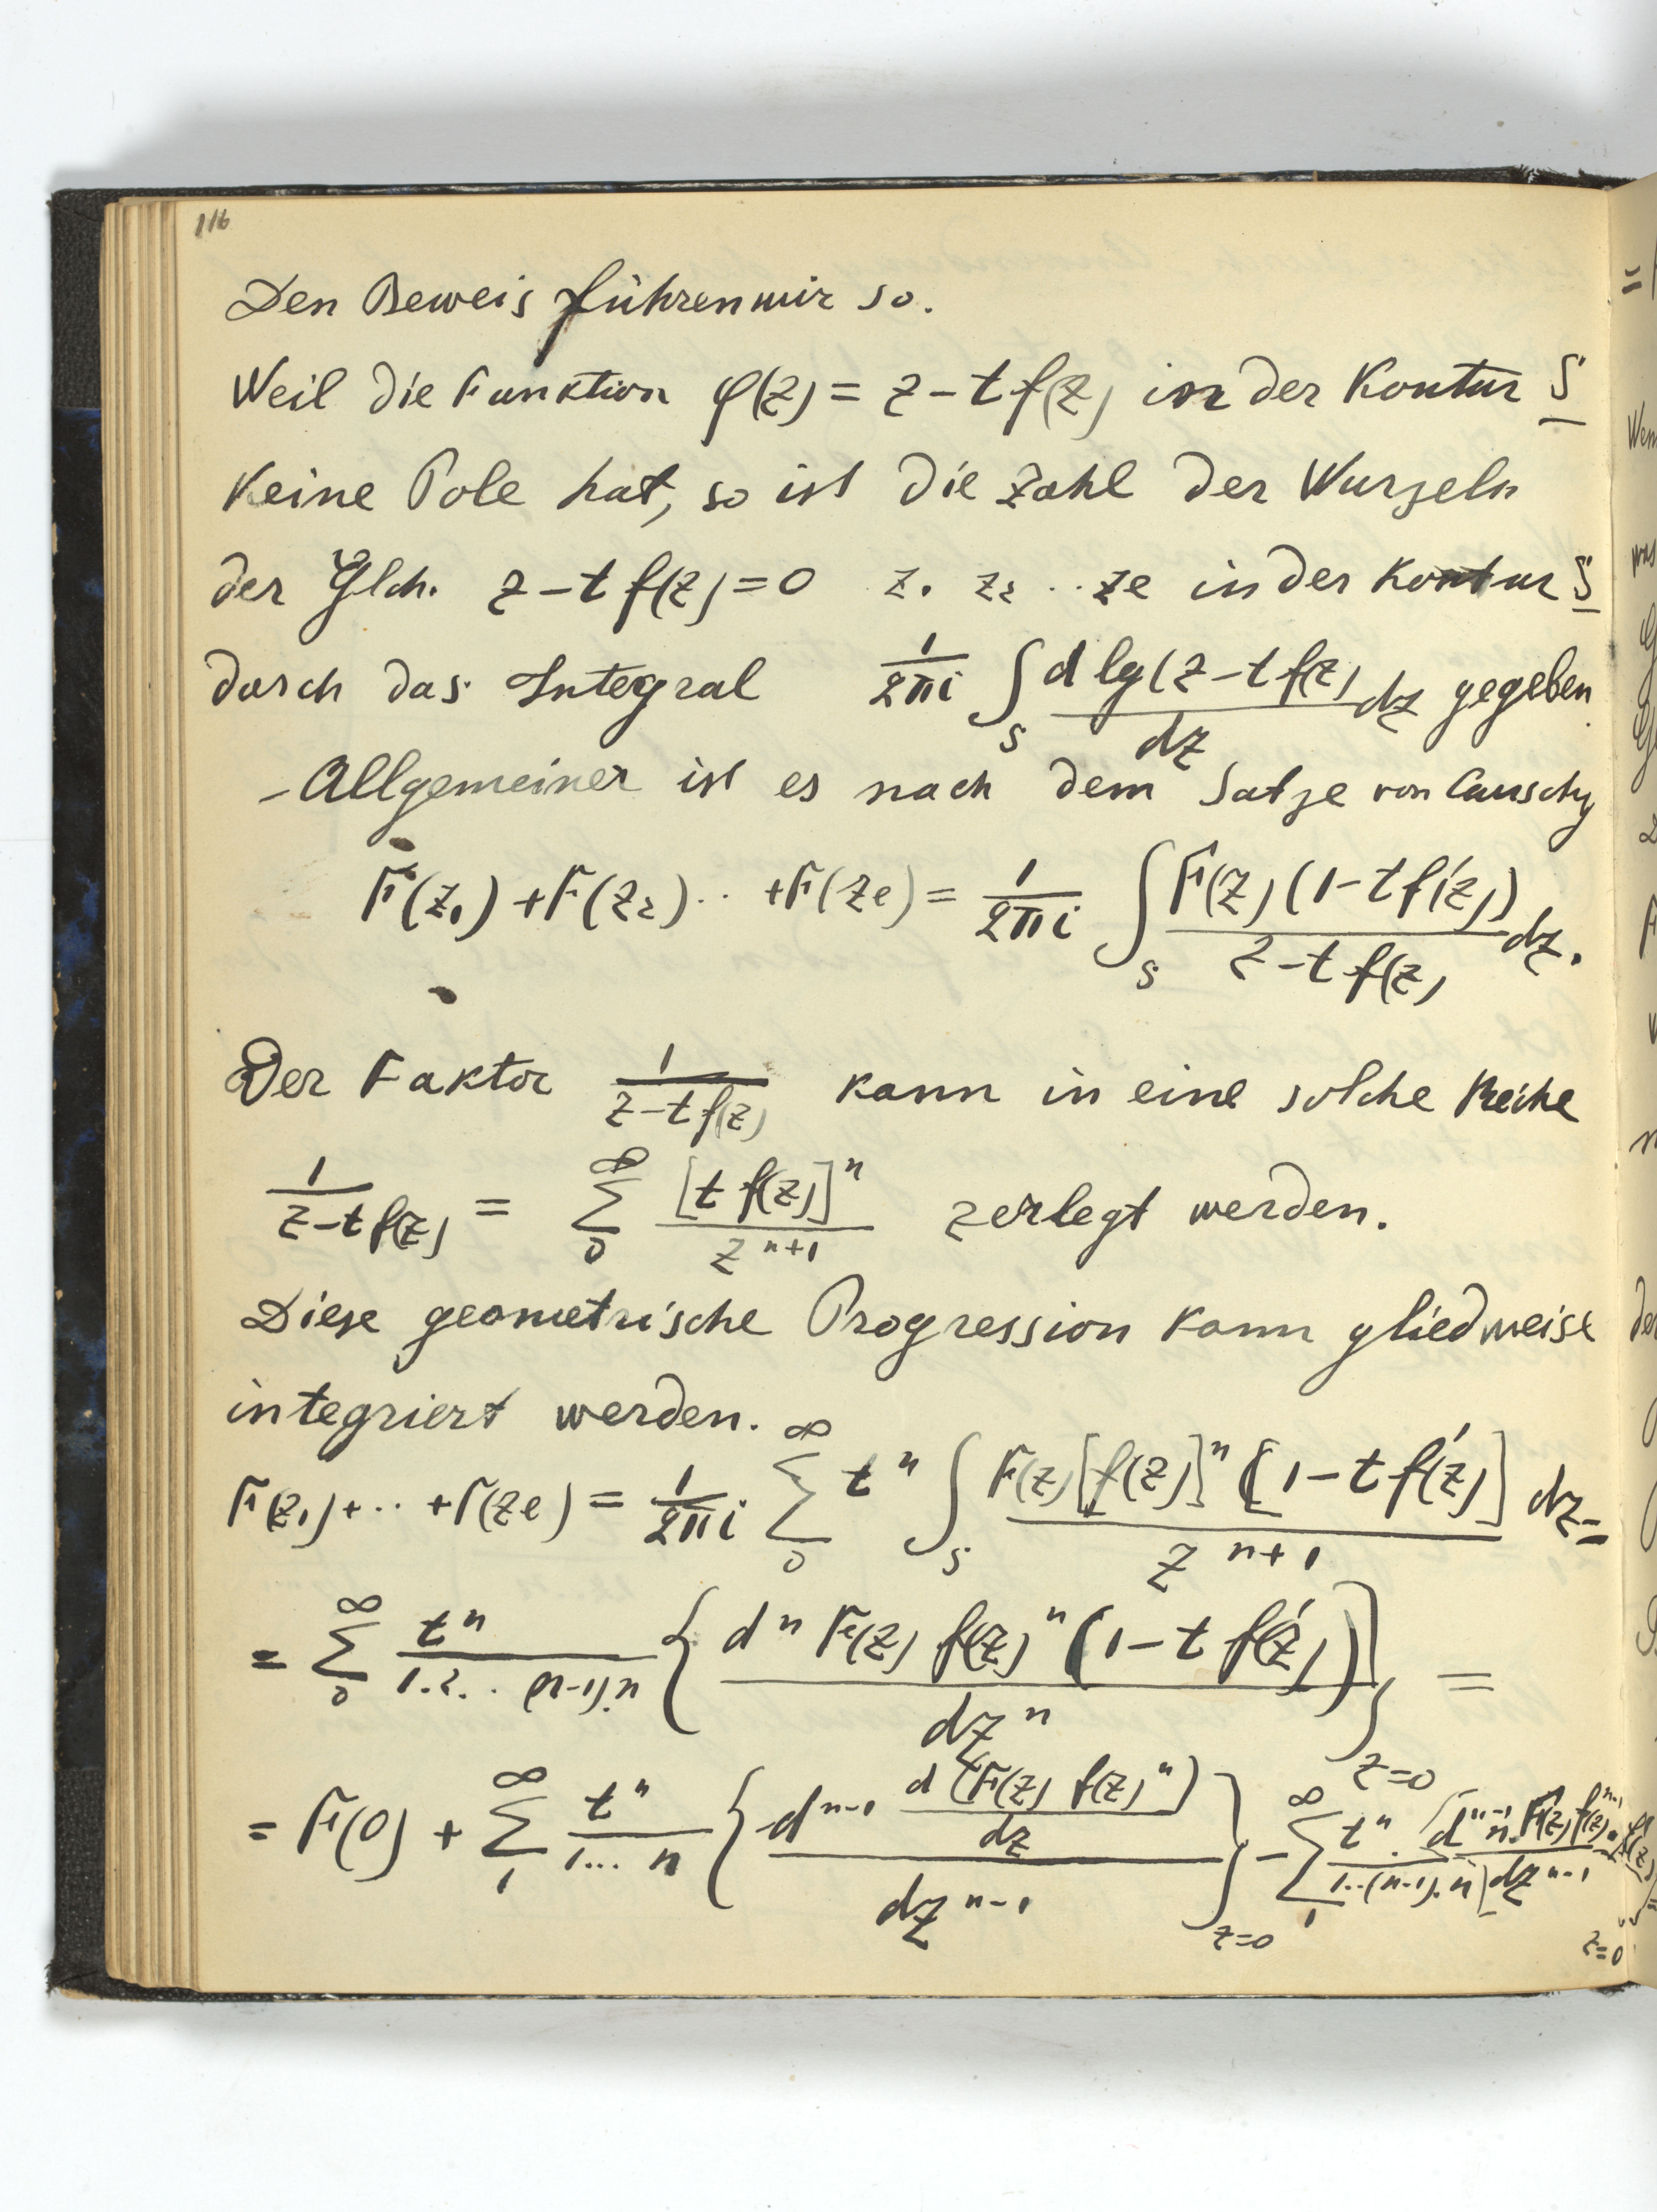 116
Den Beweis führen wir so.
Weil die Funktion φ(z) = z – t f(z) in der Kontur S
keine Pole hat, so ist die Zahl der Wurzeln
der Glch. z – t f(z) = 0 z₁ z₂ .. zₑ in der Kontur S
durch das Integral 1/2πi ∫_S d lg(z – t f(z)/dz dz gegeben
– Allgemeiner ist es nach dem Satze von Causchy
F(z₁) + F(z₂) .. + F(zₑ) = 1/2πi ∫_S F(z) (1 – t f'(z))/z – t f(z) dz.
Der Faktor 1/z – t f(z) kann in eine solche Reihe
1/z – t f(z) = ∑_0^∞ [t f(z)]^n/z^{n+1} zerlegt werden.
Diese geometrische Progression kann gliedweise
integriert werden.
F(z₁) + .. + F(zₑ) = 1/2πi ∑_0^∞ t^n ∫_S F(z) [f(z)]^n [1 – t f'(z)]/z^{n+1} dz =
= ∑_0^∞ t^n/1.2. . (n-1).n { d^n F(z) f(z)^n (1 – t f'(z))/dz^n }_{z=0} =
= F(0) + ∑_1^∞ t^n/1... n { d^{n-1} d(F(z) f(z)^n)/dz / dz^{n-1} }_{z=0} – ∑_1^∞ t^n/1..(n-1).n { d^{n-1} n. F(z) f(z)^{n-1}. f'(z)/dz^{n-1} }_{z=0} =